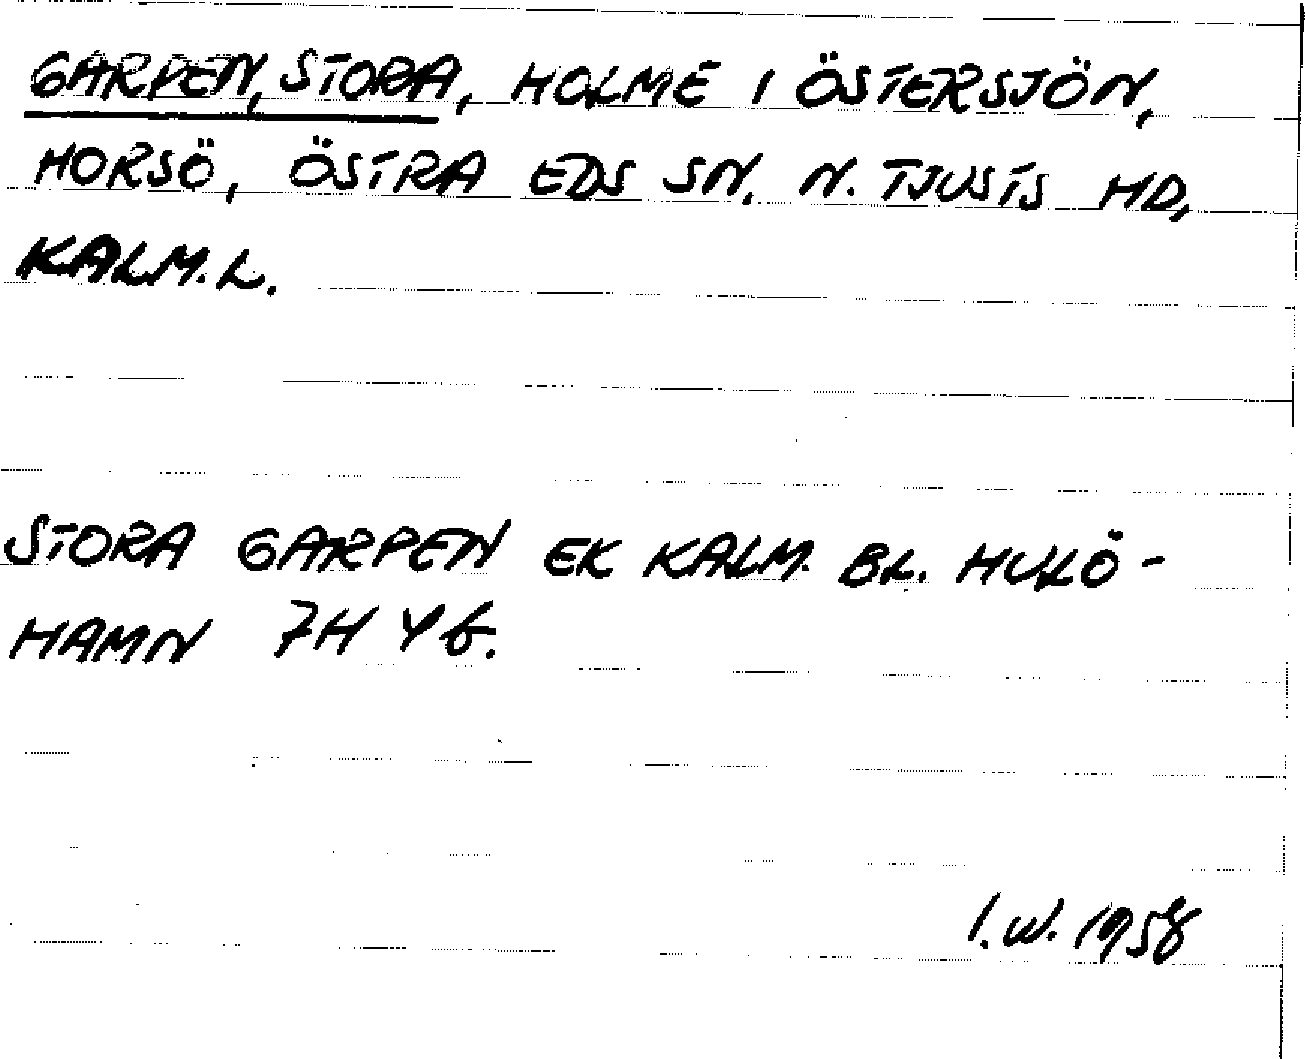 GARPEN, STORA, HOLME I ÖSTERSJÖN,
HORSÖ, ÖSTRA EDS SN, N. TJUSTS HD,
KALM. L.
STORA GARPEN EK KALM. BL. HULÖ-
HAMN 7H Y6.
I.W. 1958